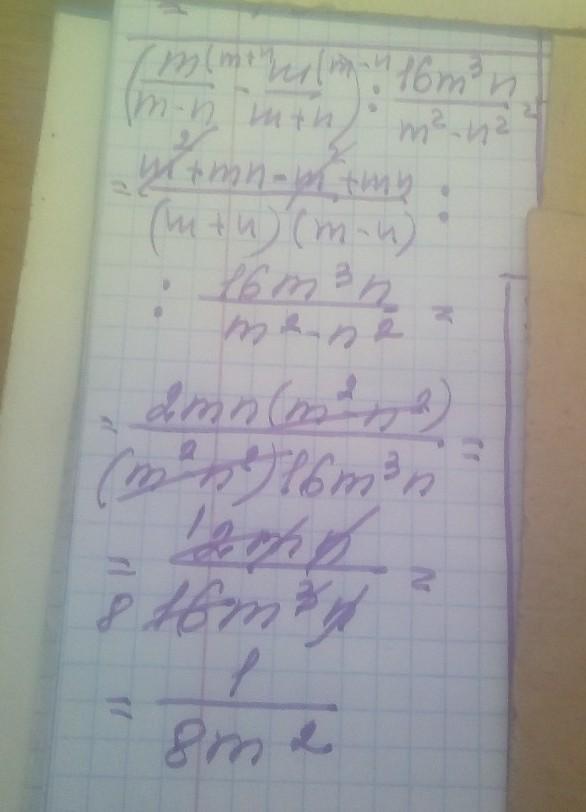 (m(m+n / m-n - m(m-n / m+n) : 16m³n / m²-n² =
= m²+mn-m²+mn / (m+n)(m-n) :
: 16m³n / m²-n² =
= 2mn(m²-n²) / (m²-n²)16m³n =
= 1 2mn / 8 16m³n =
= 1 / 8m²